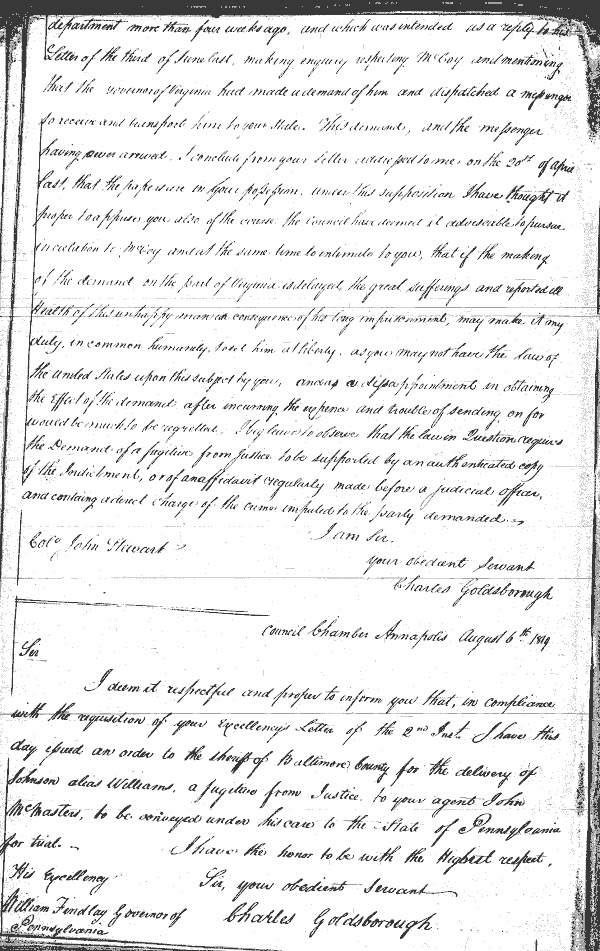 department more than four weeks ago, and which was intended as a reply to his
Letter of the third of June last, making enquiry respecting McCoy and mentioning
that the governor of Virginia had made a demand of him and dispatched a messenger
to receive and transport him to your State. This demand, and the messenger
having never arrived, I conclude from your Letter addressed to me on the 20th of April
last, that the papers are in your possession. under this supposition I have thought it
proper to apprise you also of the course the Council have deemed it adviseable to pursue
in relation to McCoy and at the same time to intimate to you, that if the making
of the demand on the part of Virginia is delayed the great sufferings and reported ill
Health of this unhappy man in consequence of his long imprisonment, may make it my
duty, in common humanity, to set him at liberty. as you may not have the law of
the united States upon this subject by you, and as a dissappointment in obtaining
the Effect of the demand after incurring the expence and trouble of sending on for
would be much to be regretted. I beg leave to observe that the law in Question requires
the Demand of a fugitive from Justice to be supported by an authenticated copy
of the Indictment, or of an affidavit regularly made before a judicial officer,
and containg a direct charge of the crime imputed to the party demanded.
I am Sir.
Colo John Stewart
your obedient Servant
Charles Goldsborough
Council Chamber Annapolis August 6th 1819
Sir
I deem it respectful and proper to inform you that, in compliance
with the requisition of your Excellency's Letter of the 2nd Inst. I have this
day issued an order to the sheriff of Baltimore County for the delivery of
Johnson alias Williams, a fugitive from Justice, to your agent John
McMasters, to be conveyed under his care to the State of Pennsylvania
for trial. I have the honor to be with the Highest respect,
His Excellency Sir, your obedient Servant
William Findlay Governor of Charles Goldsborough
Pennsylvania